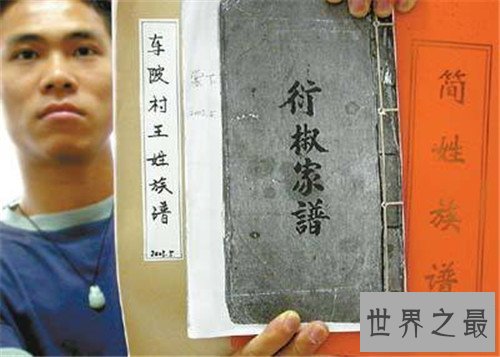 车陂村王姓族谱
2002.5
衍椒家譜
简姓族谱
世界之最